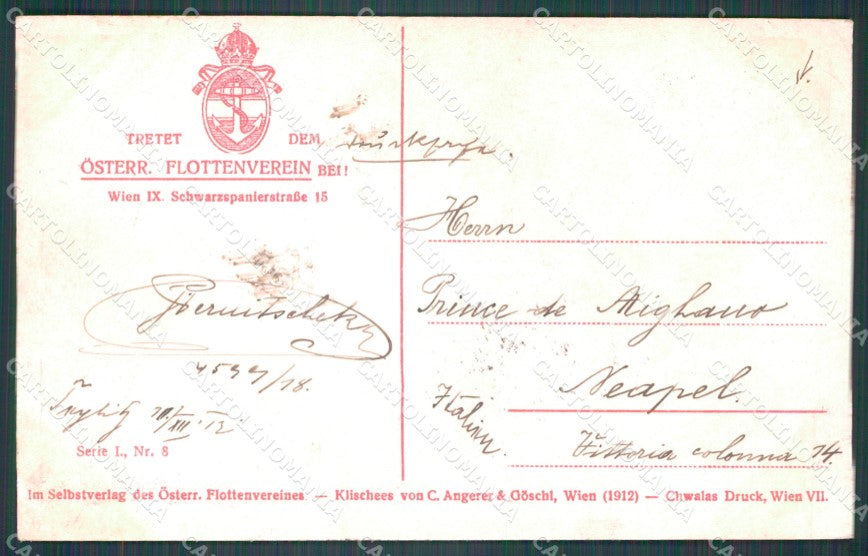 TRETET DEM
ÖSTERR. FLOTTENVEREIN BEI!
Wien IX. Schwarzspanierstraße 15
Herrn
Prince de Mighano
Neapel.
Italien
Vittoria colonna 14.
4599/18.
XII 12
Serie I., Nr. 8
Im Selbstverlag des Österr. Flottenvereines — Klischees von C. Angerer & Göschl, Wien (1912) — Chwalas Druck, Wien VII.
CARTOLINOMANIA